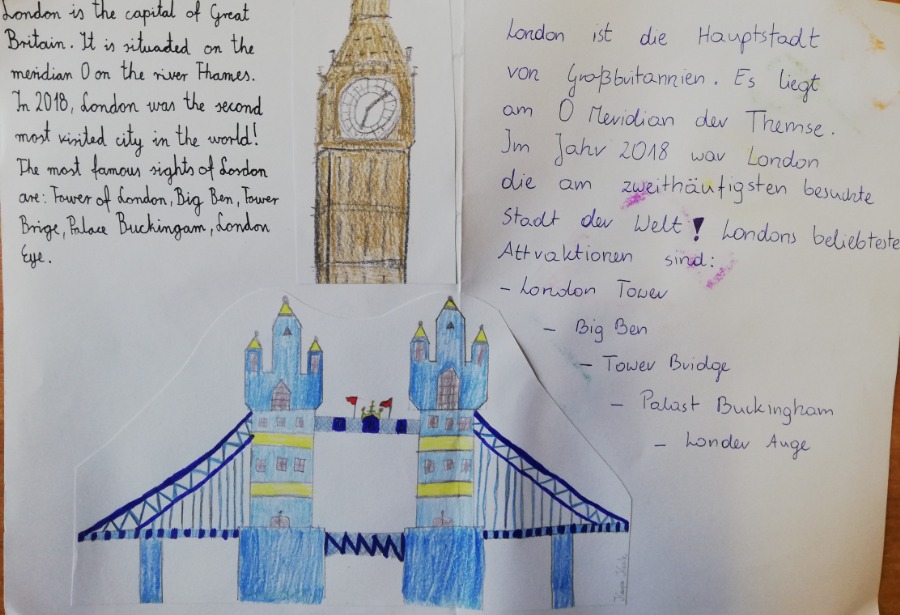 London is the capital of Great
Britain. It is situaded on the
meridian 0 on the river Thames.
In 2018, London was the second
most visited city in the world!
The most famous sights of London
are: Tower of London, Big Ben, Tower
Brige, Palace Buckingam, London
Eye.
London ist die Hauptstadt
von Großbritannien. Es liegt
am 0 Meridian der Themse.
Im Jahr 2018 war London
die am zweithäufigsten besuchte
Stadt der Welt! Londons beliebteste
Attraktionen sind:
- London Tower
- Big Ben
- Tower Bridge
- Palast Buckingham
- Londer Auge